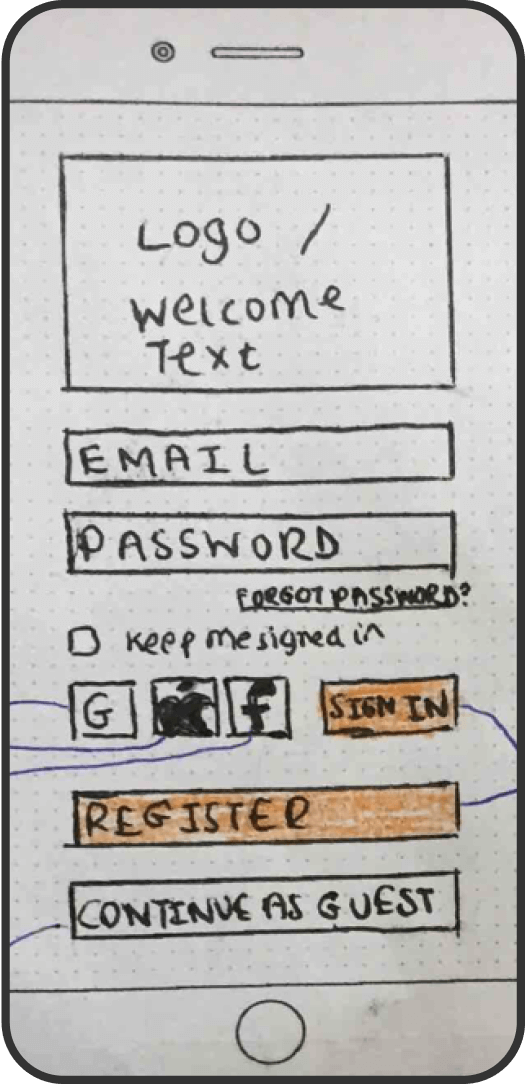 Logo /
Welcome
Text
EMAIL
PASSWORD
FORGOT PASSWORD?
Keep me signed in
G f SIGN IN
REGISTER
CONTINUE AS GUEST